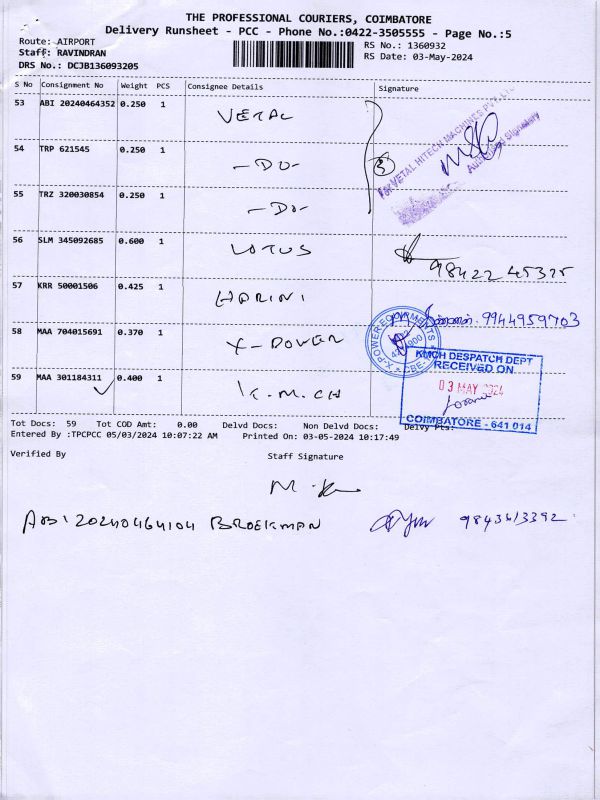 THE PROFESSIONAL COURIERS, COIMBATORE
Delivery Runsheet - PCC - Phone No.:0422-3505555 - Page No.:5
Route: AIRPORT
Staff: RAVINDRAN
DRS No.: DCJB136093205
RS No.: 1360932
RS Date: 03-May-2024
S No Consignment No Weight PCS Consignee Details Signature
53 ABI 20240464352 0.250 1 VETAL
FOR VETAL HITECH MACHINES PVT.
Authorised Signatory
54 TRP 621545 0.250 1 -DO-
3
55 TRZ 320030854 0.250 1 -DO-
56 SLM 345092685 0.600 1 LOTUS
98422 45325
57 KRR 50001506 0.425 1 HARINI
9944959703
58 MAA 704015691 0.370 1 X-POWER
X-POWER EQUIPMENTS
CBE-
59 MAA 301184311 0.400 1 K.M.CH
KMCH DESPATCH DEPT
RECEIVED ON
03 MAY 2024
COIMBATORE - 641 014
Tot Docs: 59 Tot COD Amt: 0.00 Delvd Docs: Non Delvd Docs: Delvy Pts:
Entered By :TPCPCC 05/03/2024 10:07:22 AM Printed On: 03-05-2024 10:17:49
Verified By Staff Signature
ABI 20240464104 BROEKMAN 9843613392